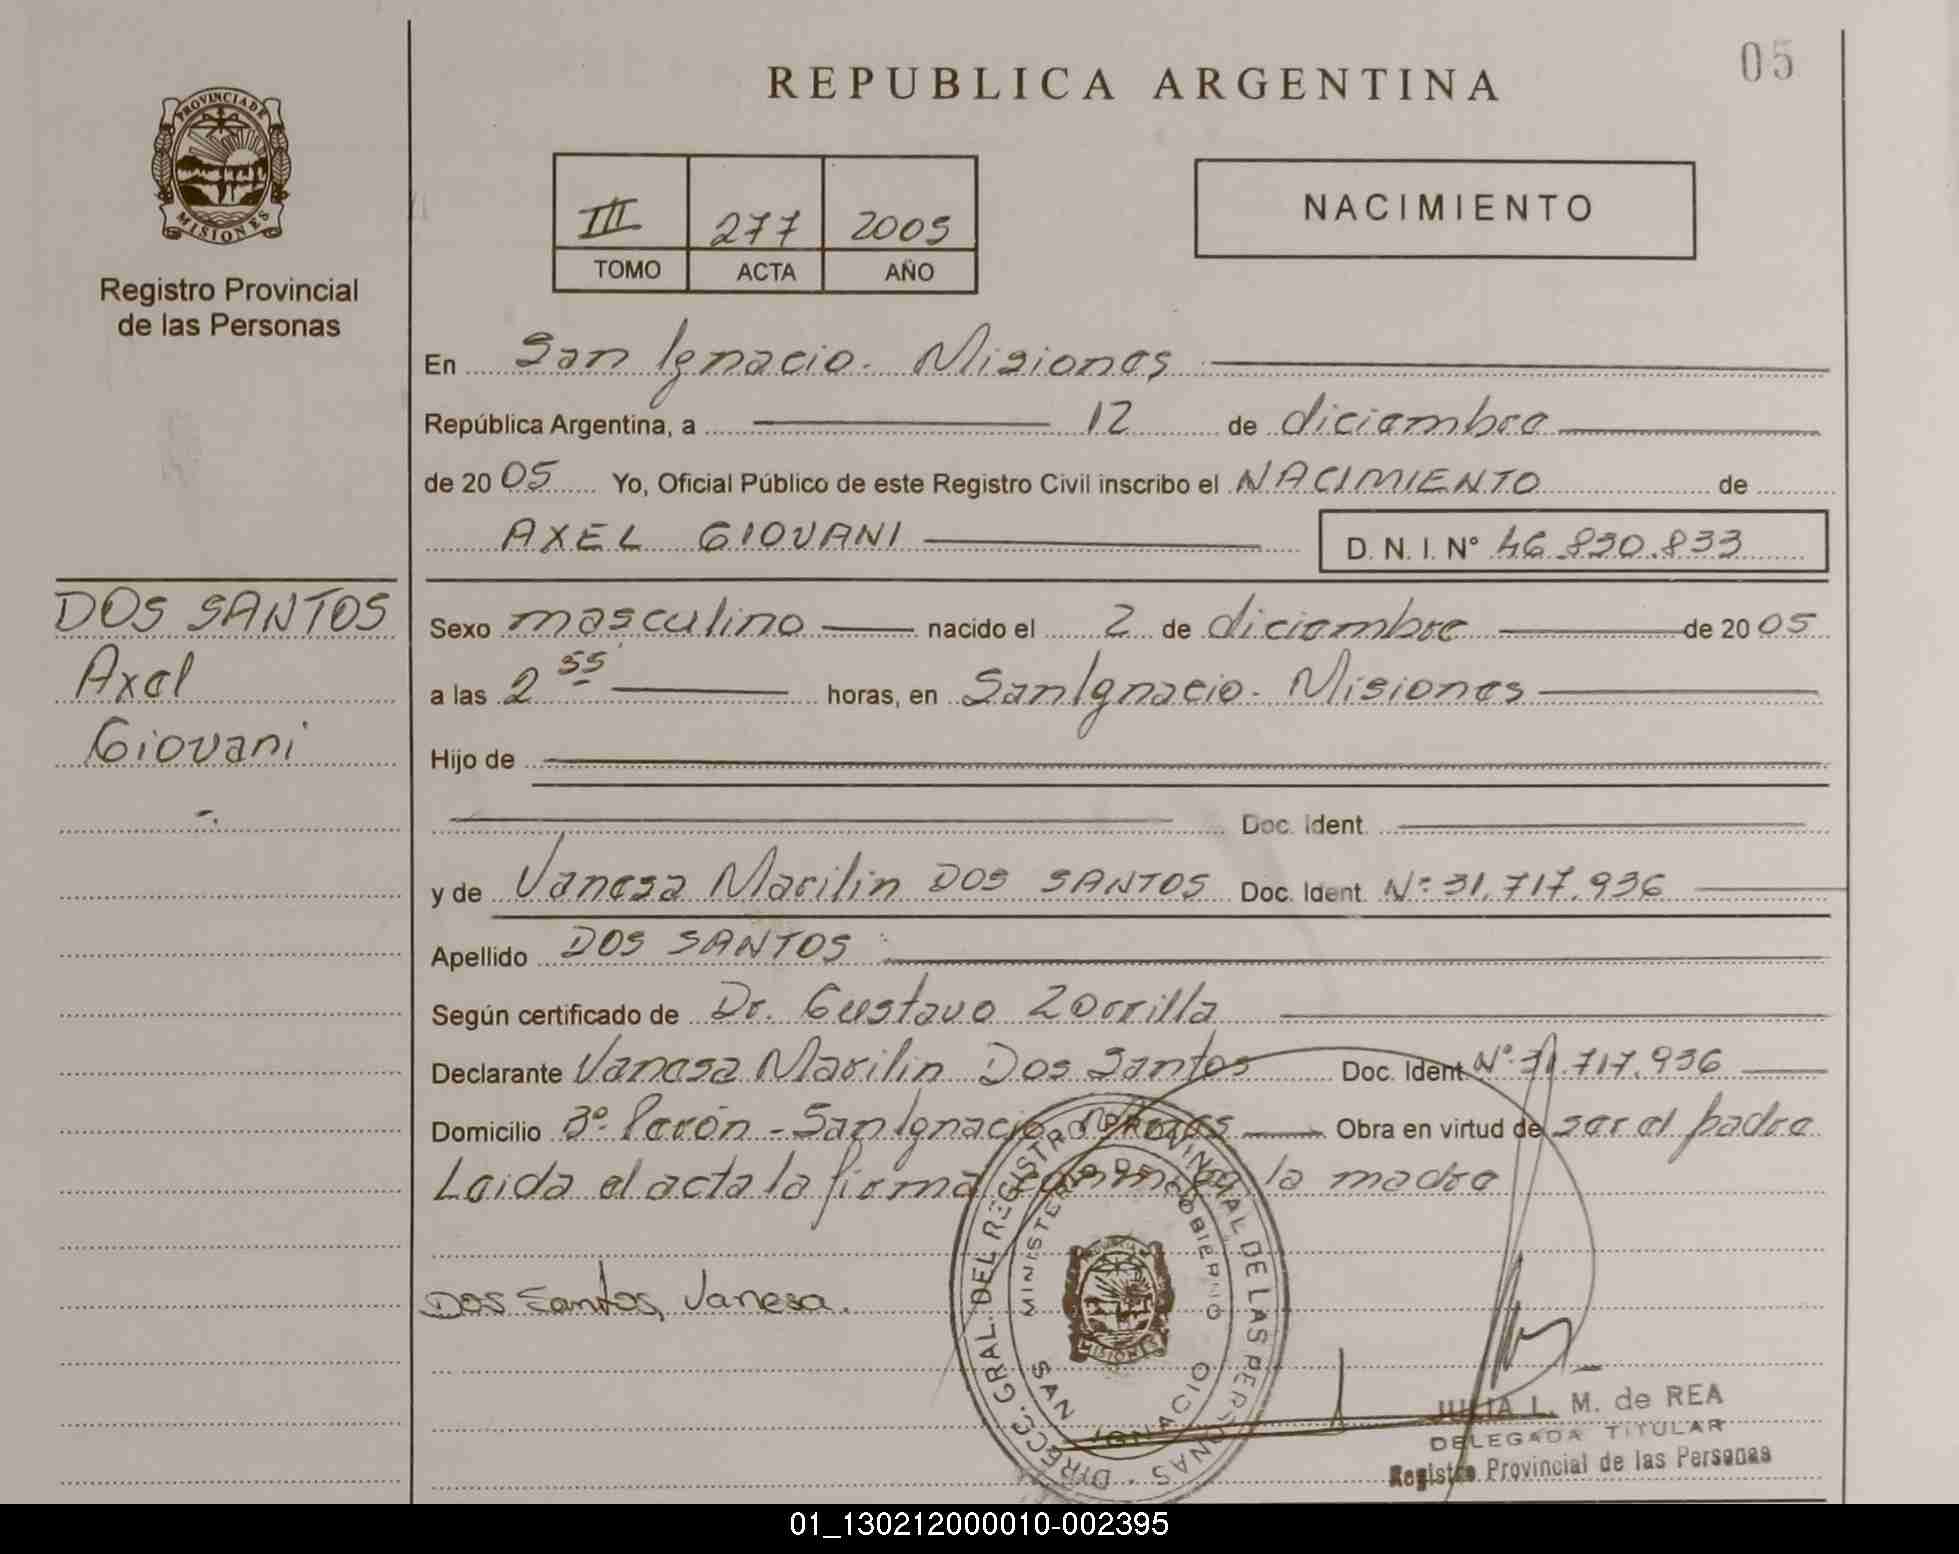 05
REPUBLICA ARGENTINA
PROVINCIA DE
MISIONES
Registro Provincial
de las Personas
III 277 2005
TOMO ACTA AÑO
NACIMIENTO
En San Ignacio - Misiones
República Argentina, a 12 de diciembre
de 20 05 Yo, Oficial Público de este Registro Civil inscribo el NACIMIENTO de
AXEL GIOVANI D. N. I. N° 46.830.833
DOS SANTOS
Axel
Giovani
Sexo masculino nacido el 2 de diciembre de 20 05
a las 2 55 horas, en San Ignacio - Misiones
Hijo de
Doc. Ident.
y de Vanesa Marilin DOS SANTOS Doc. Ident. N° 31.717.936
Apellido DOS SANTOS
Según certificado de Dr. Gustavo Zorrilla
Declarante Vanesa Marilin Dos Santos Doc. Ident. N° 31.717.936
Domicilio B° Perón - San Ignacio Obra en virtud de ser el padre
Leida el acta la firma conmigo la madre
Dos Santos, Vanesa.
DIRECC. GRAL. DEL REGISTRO PROVINCIAL DE LAS PERSONAS
MINISTERIO DE GOBIERNO
SAN IGNACIO
MISIONES
JULIA L. M. de REA
DELEGADA TITULAR
Registro Provincial de las Personas
01_130212000010-002395